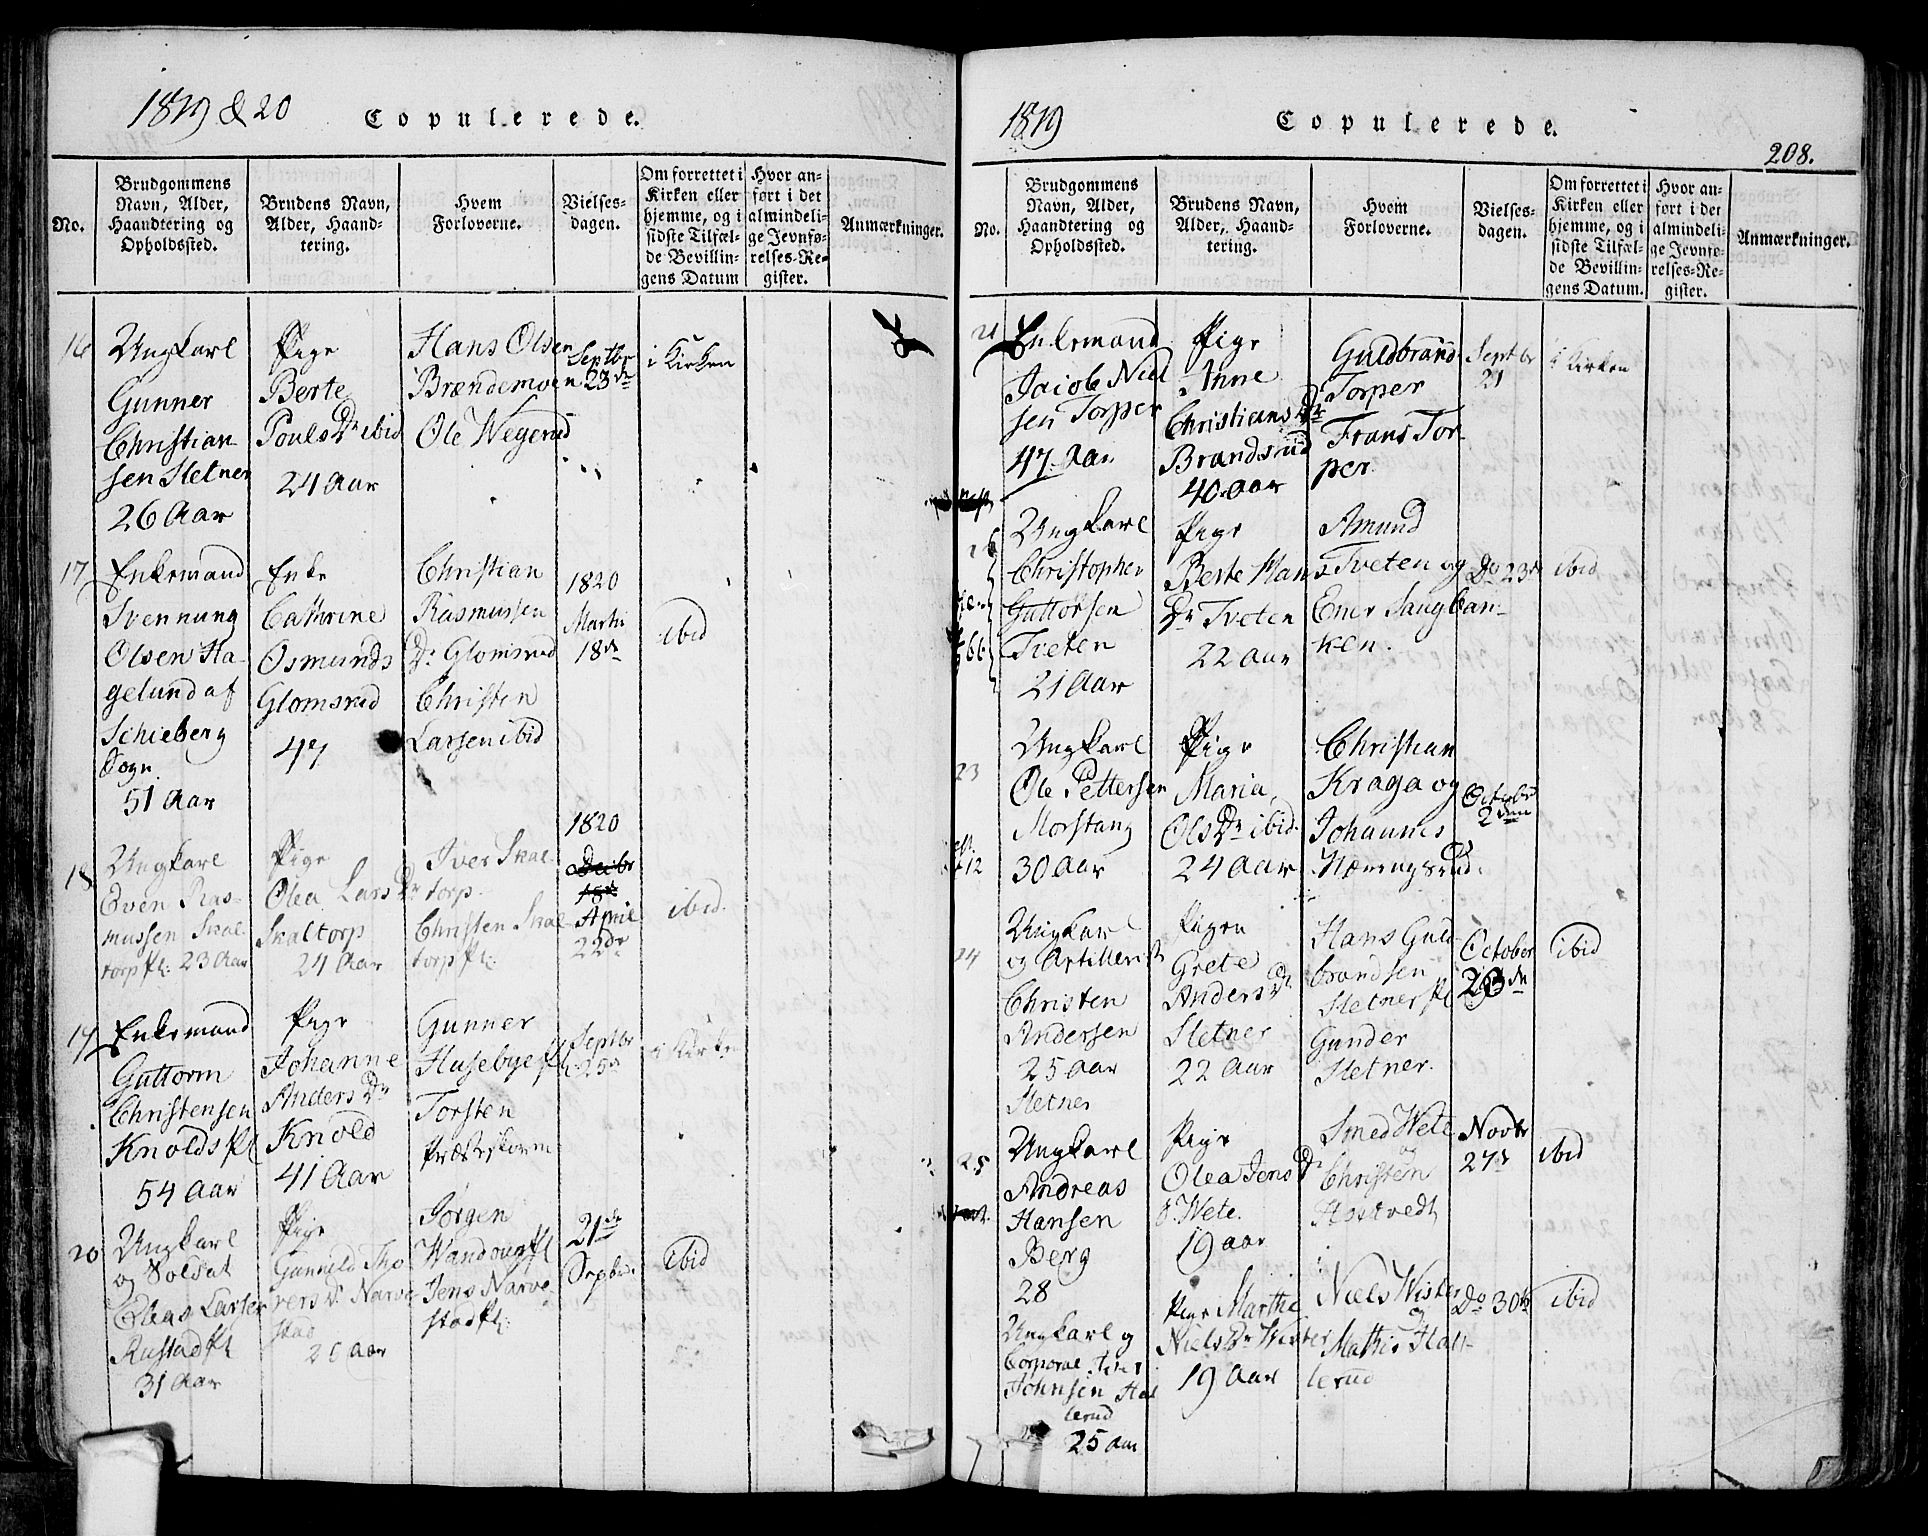 1819 & 20
Copulerede.
No.
Brudgommens
Navn, Alder,
Haandtering og
Opholdssted.
Brudens Navn,
Alder, Haand-
tering.
Hvem
Forloverne.
Vielses-
dagen.
Om forrettet i
Kirken eller
hjemme, og i
sidste Tilfæl-
de Bevillin-
gens Datum
Hvor an-
ført i det
almindeli-
ge Jevnfø-
relses-Re-
gister.
Anmærkninger.
16
Ungkarl
Gunner
Christian-
sen Sletner
26 Aar
Pige
Berte
Pouls Dr ibid
24 Aar
Hans Olsen
Brændemoen
Ole Wegerud
Septbr
23de
i Kirken
17
Enkemand
Svennung
Olsen Ha-
gelund af
Schieberg
Sogn
51 Aar
Enke
Cathrine
Osmunds Dr
Glomsrud
47
Christian
Rasmussen
Glomsrud
Christen
Larsen ibid
1820
Marti
18de
ibid
18
Ungkarl
Even Ras-
mussen Skal-
torp Pl: 23 Aar
Pige
Olea Lars Dr
Skaltorp
24 Aar
Iver Skal-
torp
Christen Skal-
torp Pl:
1820
April
22de
ibid.
19
Enkemand
Guttorm
Christensen
Knolds Pl
54 Aar
Pige
Johanne
Anders Dr
Knold
41 Aar
Gunner
Husebye Pl:
Torsten
Septbr
25de
i Kirken
20
Ungkarl
og Soldat
Oleas Larsen
Rustad Pl
31 Aar
Pige
Gunnild Tho
rers Dr Narve
stad
Jörgen
Wandoug Pl
Jens Narve
stad Pl:
21de
Sepbr.
ibid
1819
Copulerede.
208.
No.
Brudgommens
Navn, Alder,
Haandtering og
Opholdssted.
Brudens Navn,
Alder, Haand-
tering.
Hvem
Forloverne.
Vielses-
dagen.
Om forrettet i
Kirken eller
hjemme, og i
sidste Tilfæl-
de Bevillin-
gens Datum.
Hvor an-
ført i det
almindeli-
ge Jevnfø-
relses-Re-
gister.
Anmærkninger.
21
Enkemand
Jacob Niel
sen Torper
47 Aar
Pige
Anne
Christians Dr
Brandsrud
40 Aar
Guldbrand
Torper
Frans Tor-
per.
Septbr
21
i Kirken
Ungkarl
Christopher
Guttorsen
Tveten
21 Aar
Pige
Berte Hans
Dr Tveten
22 Aar
Amund
Tveten og
Ener Saugban-
ken.
Do 23de
ibid
23
Ungkarl
Ole Pettersen
Morstang
30 Aar
Pige
Maria
Ols Dr ibid.
24 Aar
Christian
Kraga og
Johannes
Næringsrud.
Octobr
2den
24
Ungkar
og Artillerist
Christen
Andersen
25 Aar
Sletner
Pigen
Grete
Anders Dr
Sletner
22 Aar
Hans Guld-
brandsen
Sletner Pl
Gunder
Sletner.
October
ibid
25
Ungkarl
Andreas
Hansen
Berg
28
Pige
Olea Jens Dr
Wete.
19 aar
Smed Wete
og
Christen
Novbr
27de
ibid
Ungkarl og
Corporal
Johnsen Hal
lerud
25 Aar
Pige Marthe
Niels Dr Wister
19 Aar
Niels Wister
og
Mathis Hal-
lerud
Do 30te
ibid